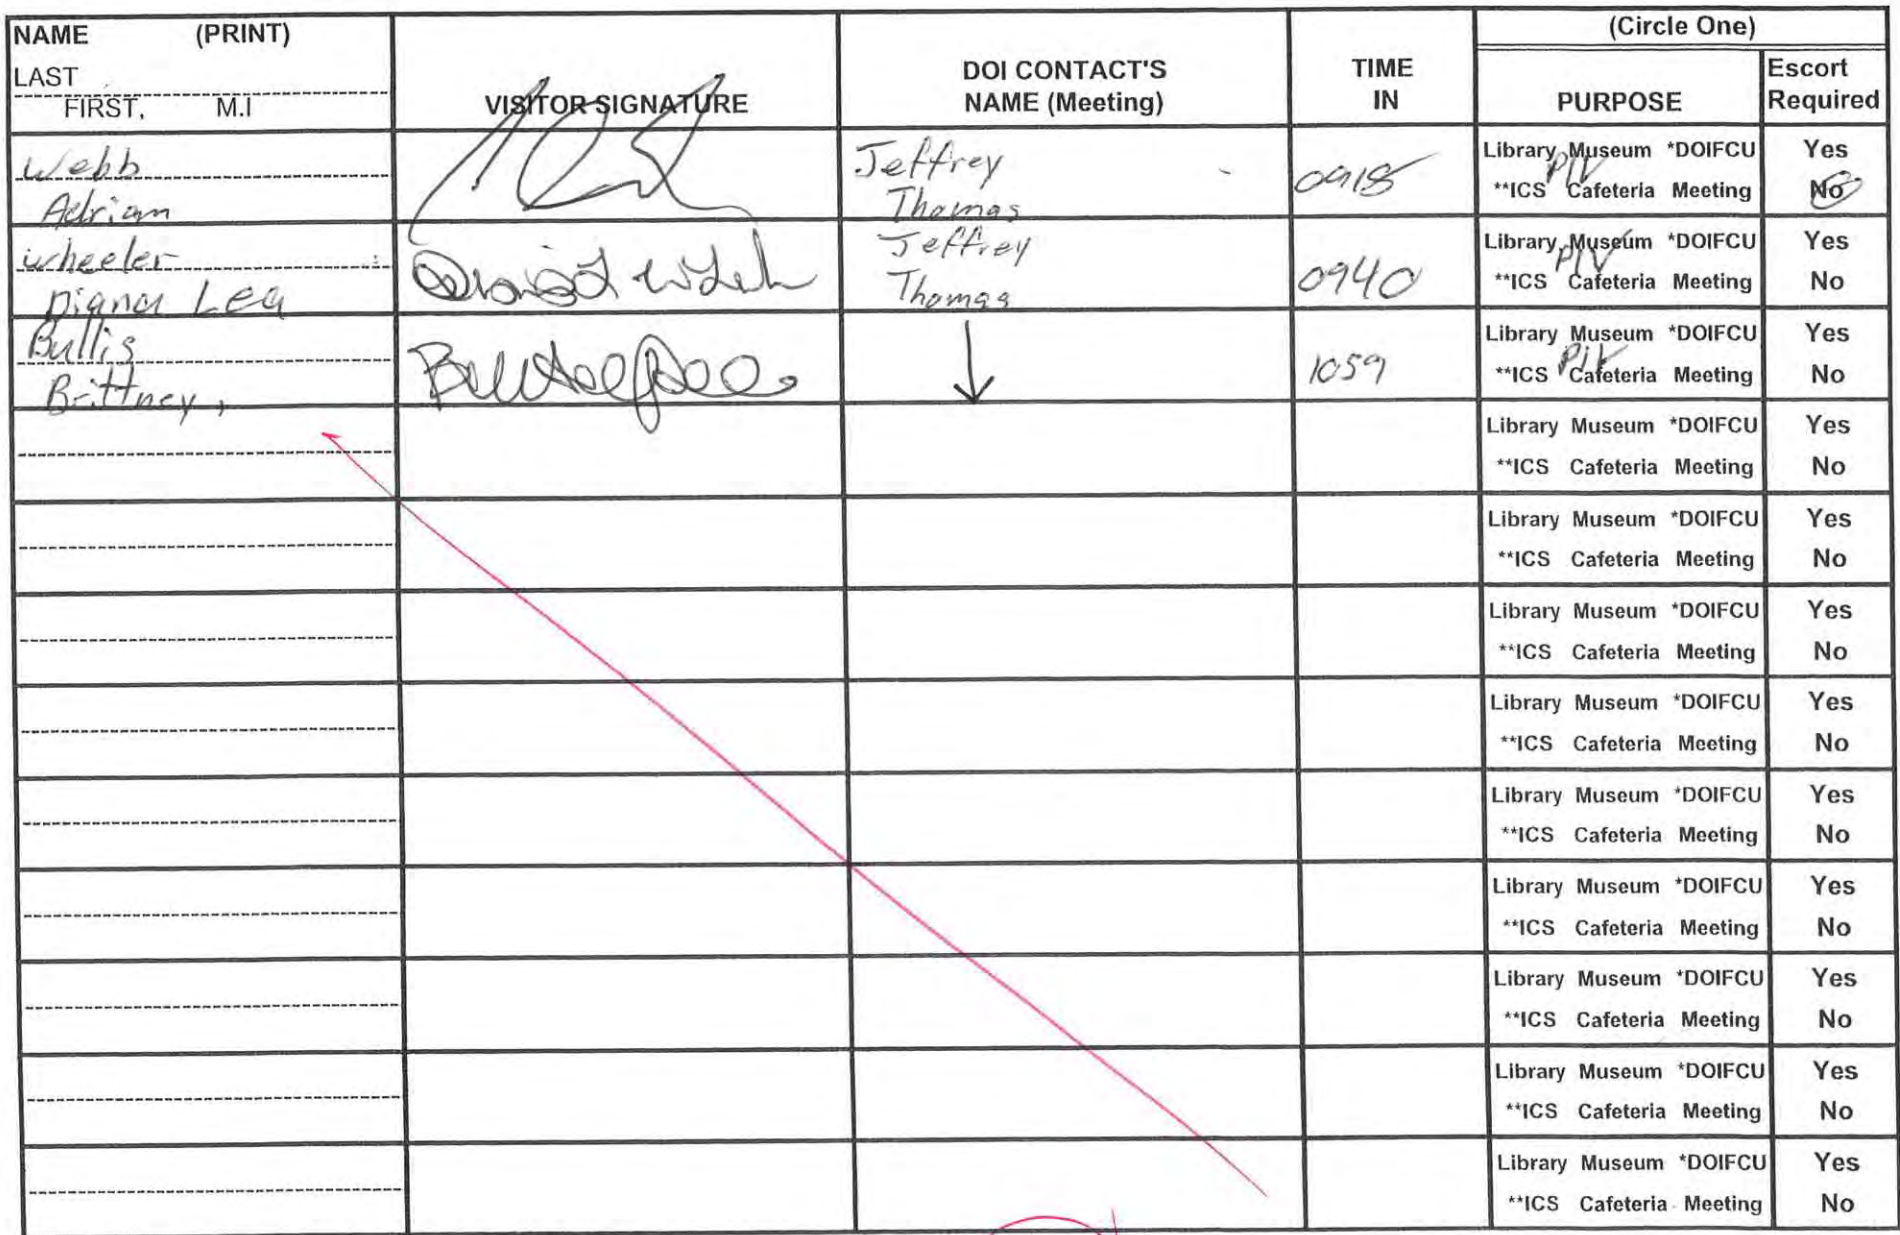 NAME (PRINT)
LAST
FIRST, M.I
VISITOR SIGNATURE
DOI CONTACT'S
NAME (Meeting)
TIME
IN
(Circle One)
PURPOSE
Escort
Required
Webb
Adrian
Jeffrey
Thomas
0918
Library Museum *DOIFCU
PIV
**ICS Cafeteria Meeting
Yes
No
Wheeler
Diana Lea
Jeffrey
Thomas
0940
Library Museum *DOIFCU
PIV
**ICS Cafeteria Meeting
Yes
No
Bullis
Brittney,
1059
Library Museum *DOIFCU
PIV
**ICS Cafeteria Meeting
Yes
No
Library Museum *DOIFCU
**ICS Cafeteria Meeting
Yes
No
Library Museum *DOIFCU
**ICS Cafeteria Meeting
Yes
No
Library Museum *DOIFCU
**ICS Cafeteria Meeting
Yes
No
Library Museum *DOIFCU
**ICS Cafeteria Meeting
Yes
No
Library Museum *DOIFCU
**ICS Cafeteria Meeting
Yes
No
Library Museum *DOIFCU
**ICS Cafeteria Meeting
Yes
No
Library Museum *DOIFCU
**ICS Cafeteria Meeting
Yes
No
Library Museum *DOIFCU
**ICS Cafeteria Meeting
Yes
No
Library Museum *DOIFCU
**ICS Cafeteria Meeting
Yes
No